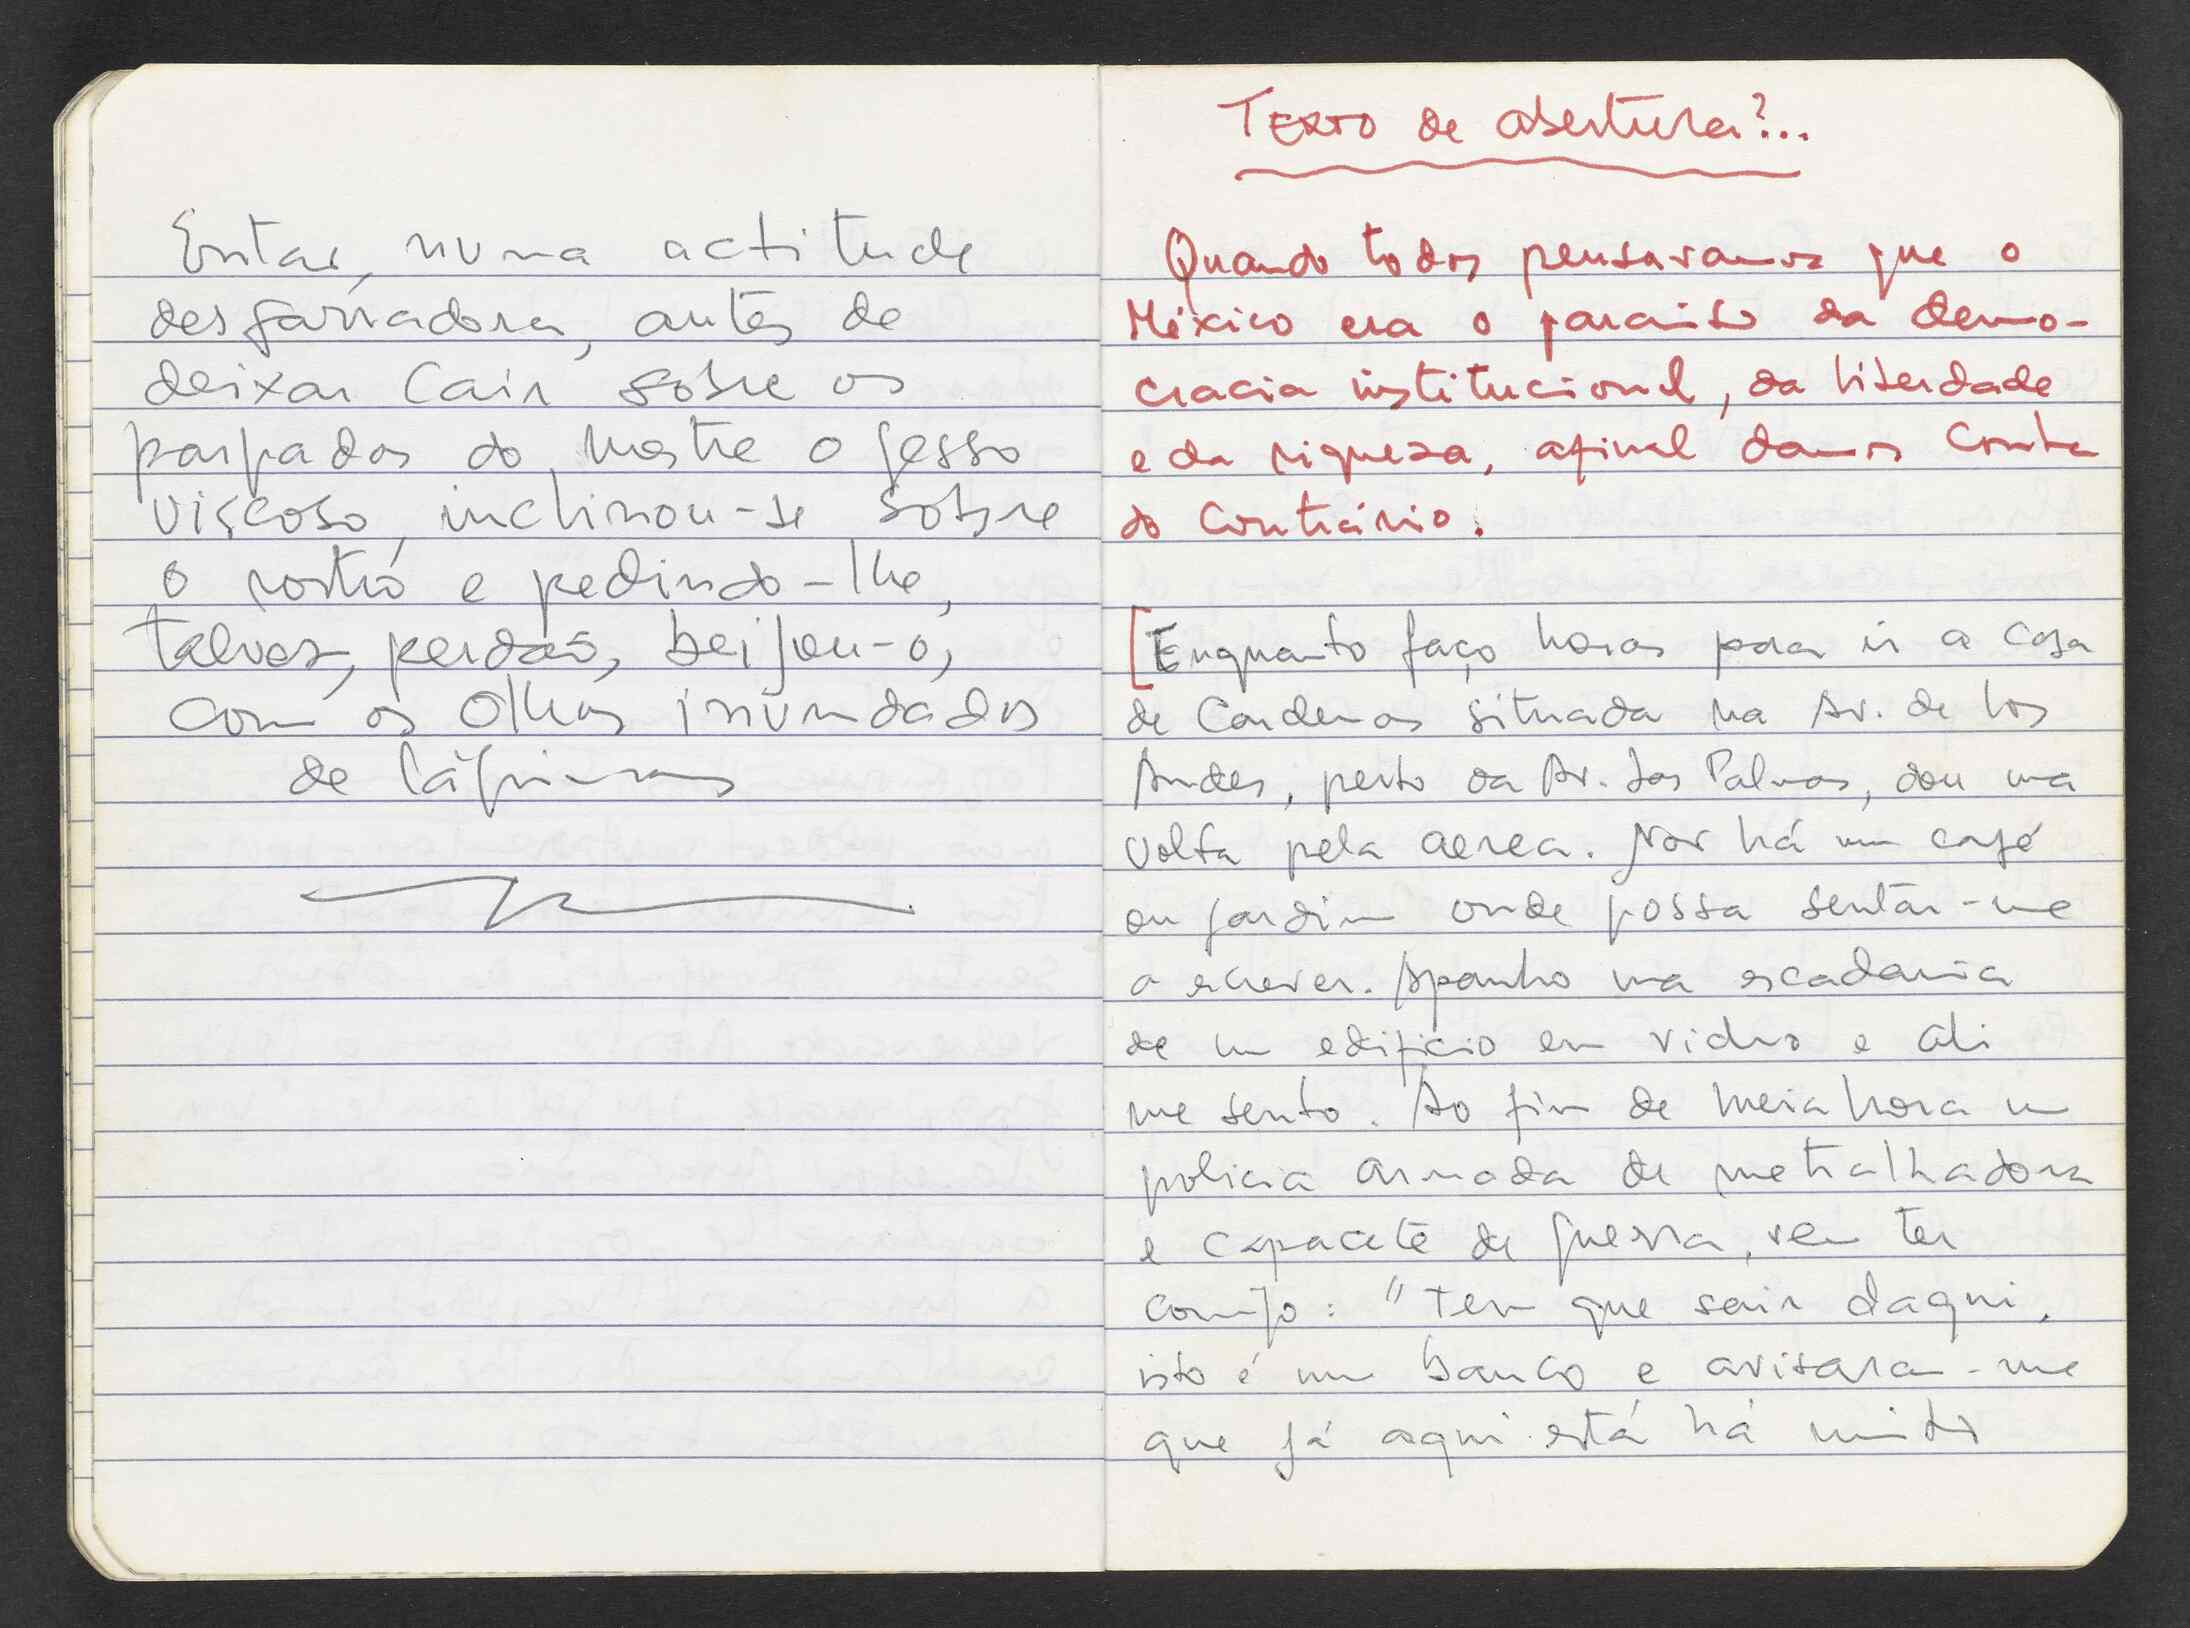 Entar, numa actitude
desgarradora, antes de
deixar cair sobre os
parpados do mestre o gesso
viscoso, inclinou-se sobre
o rosto e pedindo-lhe,
talvez, perdão, beijou-o,
com os olhos inundados
de lágrimas
Texto de abertura?...
Quando todos pensavamos que o
México era o paraiso da demo-
cracia institucional, da liberdade
e da riqueza, afinal damos conta
do contrário.
[Enquanto faço horas para ir a casa
de Cardenas situada na Av. de los
Andes, perto da Av. das Palmas, dou uma
volta pela aerea. Não há um café
ou jardim onde possa sentar-me
a escrever. Apanho uma escadaria
de um edificio em vidro e ali
me sento. Ao fim de meia hora um
policia armada de metralhadora
e capacete de guerra, vem ter
comigo: "Tem que sair daqui,
isto é um banco e avisaram-me
que já aqui está há muito